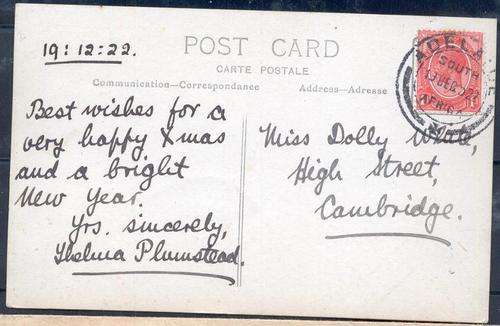 19:12:22.
POST CARD
CARTE POSTALE
Communication—Correspondance
Address—Adresse
ADELA
SOUTH
AFRICA
Best wishes for a
very happy Xmas
and a bright
New Year.
Yrs. sincerely,
Thelma Plumstead.
Miss Dolly
High Street,
Cambridge.